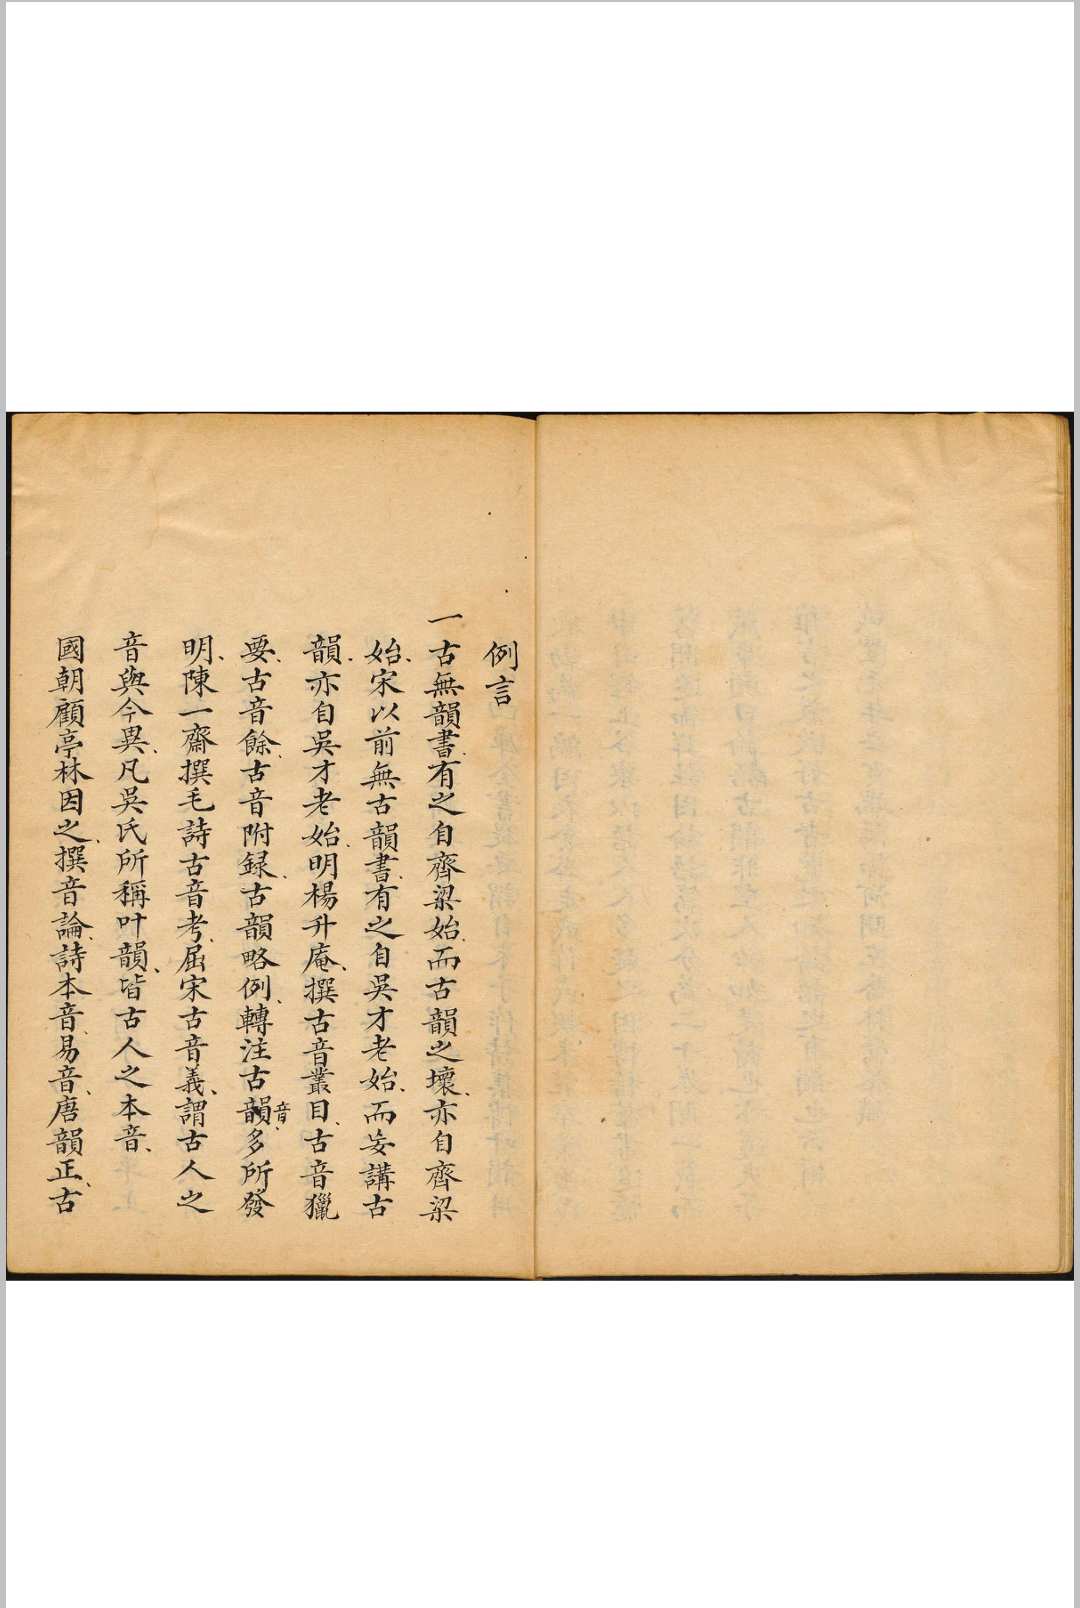 例言
一古無韻書、有之自齊梁始、而古韻之壞、亦自齊梁
始、宋以前無古韻書、有之自吳才老始、而妄講古
韻、亦自吳才老始、明楊升庵、撰古音叢目、古音獵
要、古音餘、古音附録、古韻略例、轉注古韻音、多所發
明、陳一齋撰毛詩古音考、屈宋古音義、謂古人之
音與今異、凡吳氏所稱叶韻、皆古人之本音、
國朝顧亭林因之、撰音論、詩本音、易音、唐韻正、古